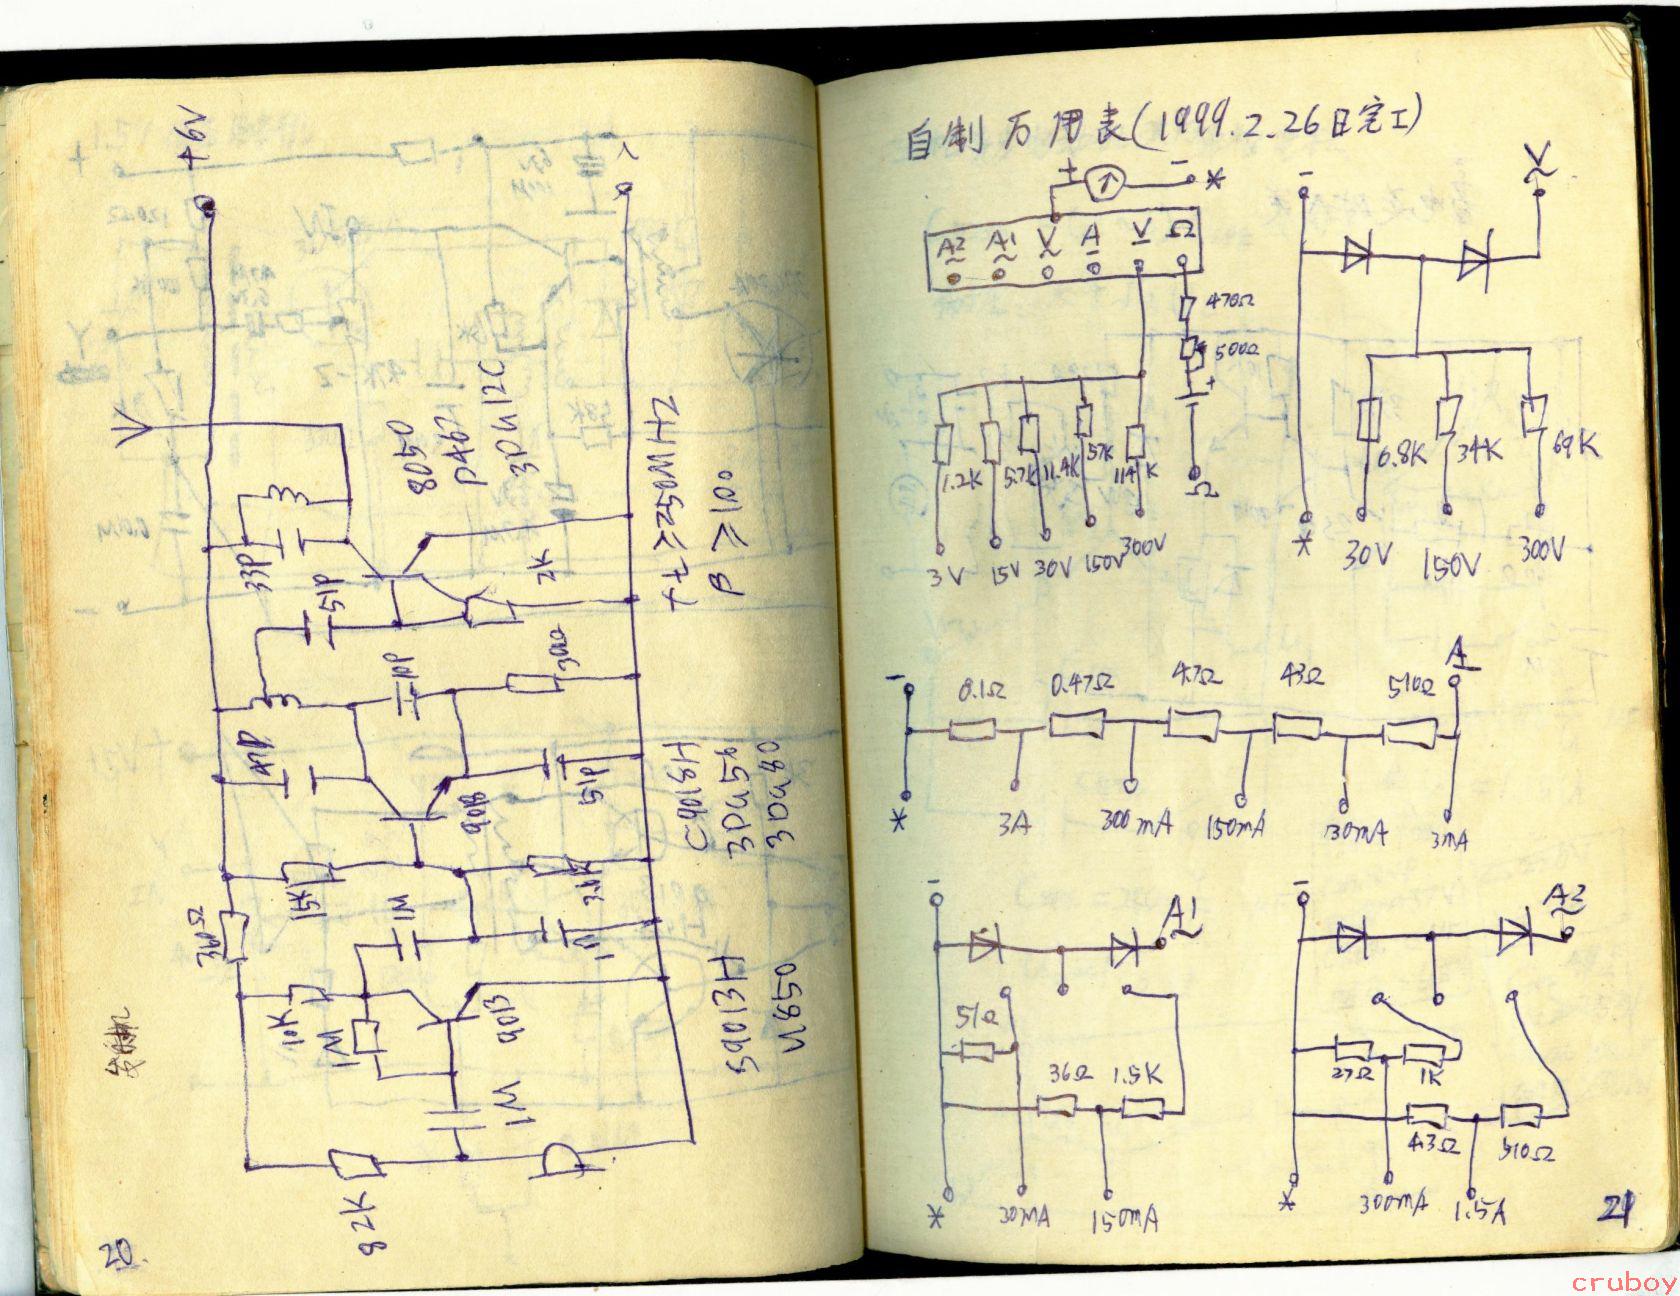 +6V
8050
D467
3DG12C
33P
51P
2K
ft ≥ 250MHZ
β ≥ 100
10P
300Ω
47P
9018
51P
C9018H
3DG56
3DG80
15K
1M
360Ω
10K
1M
9013
1M
S9013H
U850
82K
20
自制万用表(1999.2.26日完工)
+ - *
A2 A1 V A V Ω
~ ~ ~ — — 
470Ω
500Ω
+
1.2K 5.7K 11.4K 57K 114K
Ω
3V 15V 30V 150V 300V
- V
~
6.8K 34K 69K
* 30V 150V 300V
- 0.1Ω 0.47Ω 4.7Ω 43Ω 510Ω A
* 3A 300mA 150mA 30mA 3mA
- A1
~
51Ω
36Ω 1.5K
* 30MA 150mA
- A2
~
27Ω 1K
4.3Ω 510Ω
* 300mA 1.5A
21
cruboy